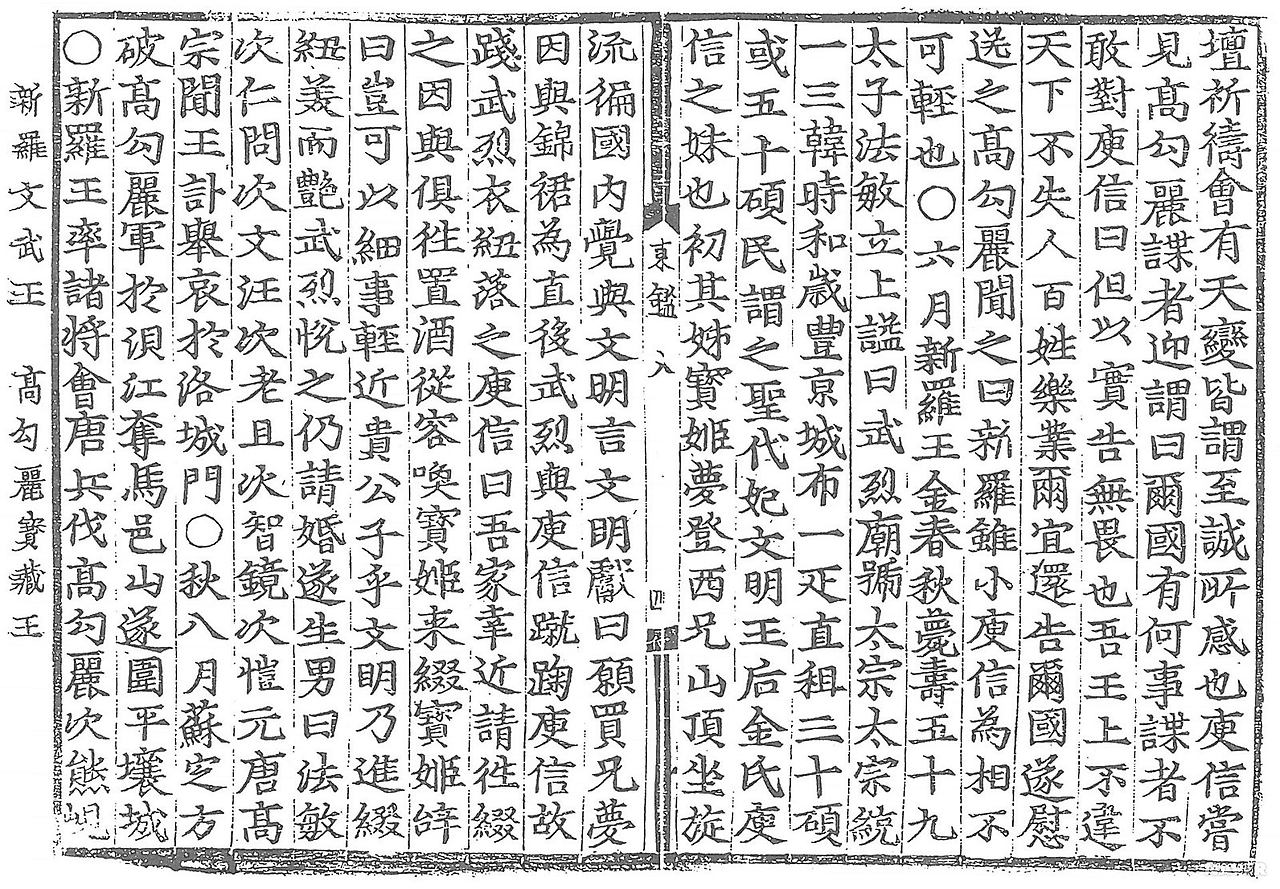 壇祈禱會有天變皆謂至誠所感也庾信嘗
見高勾麗諜者迎謂曰爾國有何事諜者不
敢對庾信曰但以實告無畏也吾王上不違
天下不失人百姓樂業爾宜還告爾國遂慰
送之高勾麗聞之曰新羅雖小庾信為相不
可輕也○六月新羅王金春秋薨壽五十九
太子法敏立上謚曰武烈廟號太宗太宗統
一三韓時和歲豊京城布一疋直租三十碩
或五十碩民謂之聖代妃文明王后金氏庾
信之妹也初其姊寶姬夢登西兄山頂坐旋
東鑑 八
四
流徧國内覺與文明言文明戱曰願買兄夢
因與錦裙為直後武烈與庾信蹴踘庾信故
踐武烈衣紐落之庾信曰吾家幸近請往綴
之因與俱往置酒從容喚寶姬来綴寶姬辞
曰豈可以細事輕近貴公子乎文明乃進綴
紐美而艷武烈悅之仍請婚遂生男曰法敏
次仁問次文汪次老且次智鏡次愷元唐高
宗聞王訃舉哀於洛城門○秋八月蘇定方
破高勾麗軍於浿江奪馬邑山遂圍平壤城
○新羅王率諸將會唐兵伐高勾麗次熊峴
新羅文武王 高勾麗寶藏王